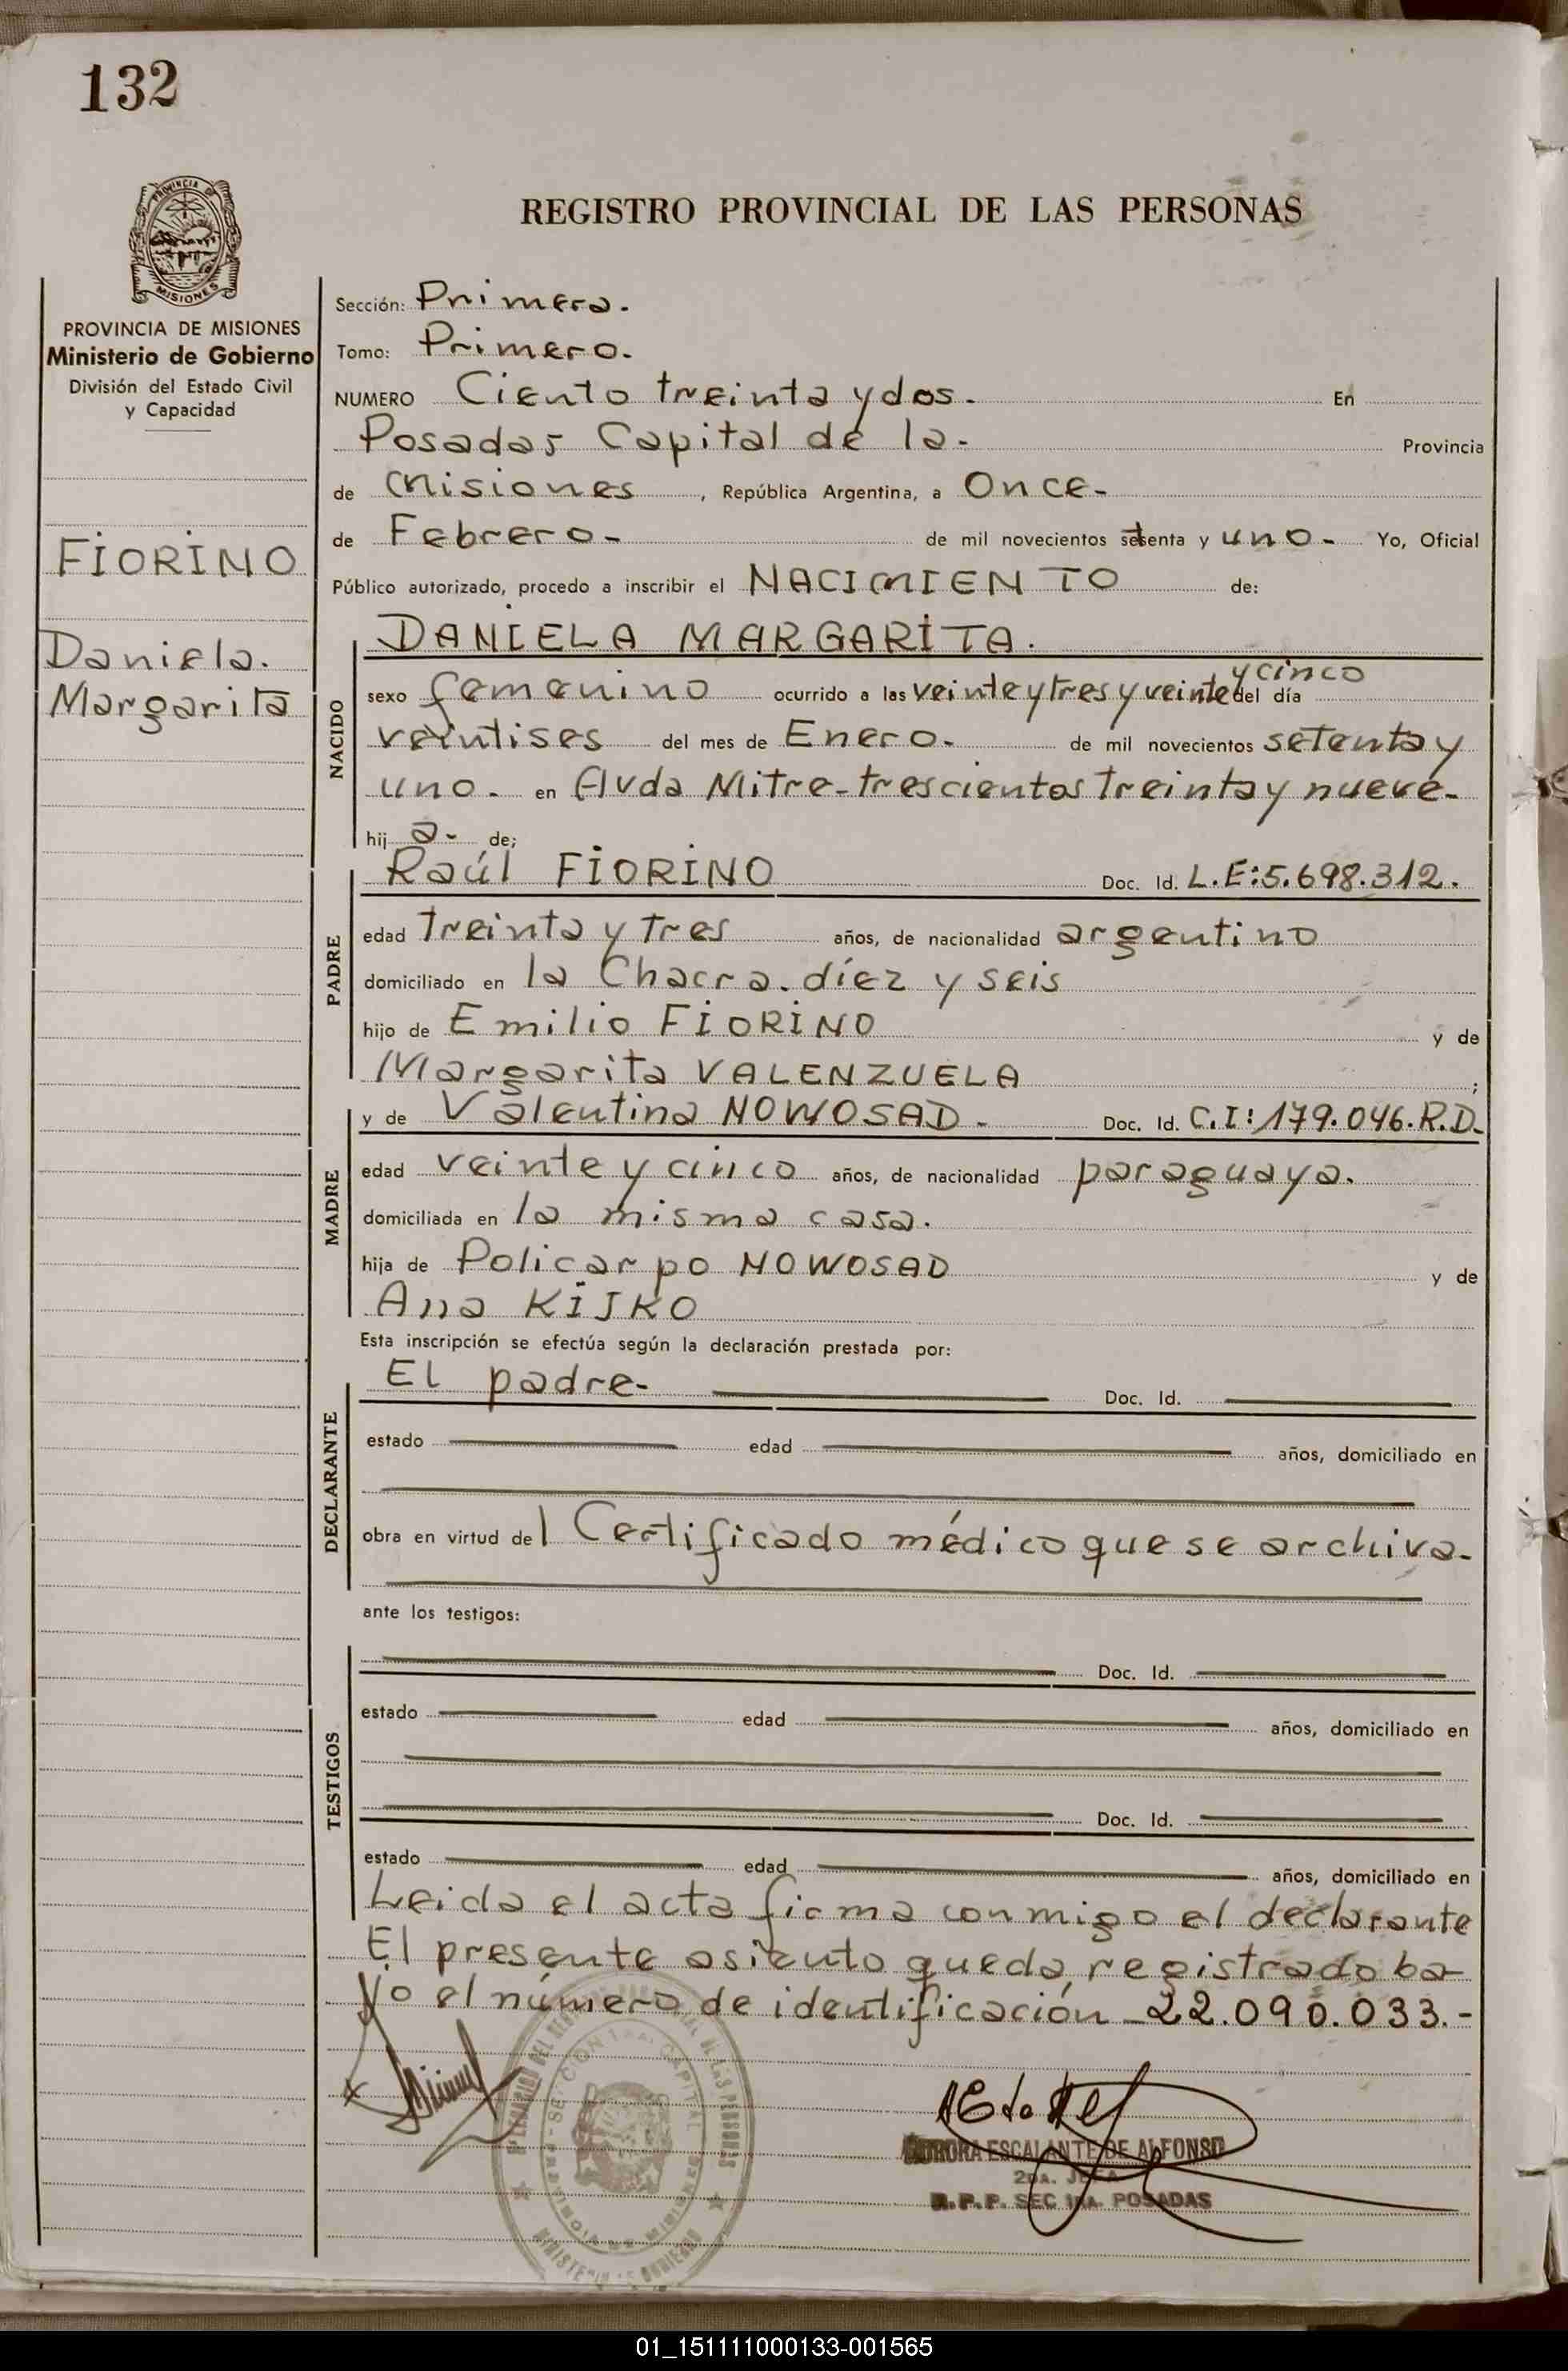 132
PROVINCIA DE
MISIONES
REGISTRO PROVINCIAL DE LAS PERSONAS
PROVINCIA DE MISIONES
Ministerio de Gobierno
División del Estado Civil
y Capacidad
FIORINO
Daniela.
Margarita
Sección: Primera.
Tomo: Primero.
NUMERO Ciento treinta y dos. En
Posadas Capital de la. Provincia
de Misiones, República Argentina, a Once.
de Febrero. de mil novecientos setenta y uno. Yo, Oficial
Público autorizado, procedo a inscribir el NACIMIENTO de:
DANIELA MARGARITA.
NACIDO
y cinco
sexo femenino ocurrido a las veinte y tres y veinte del día
veintises del mes de Enero. de mil novecientos setenta y
uno. en Avda Mitre-trescientos treinta y nueve.
hij a. de;
PADRE
Raúl FIORINO Doc. Id. L.E:5.698.312.
edad treinta y tres años, de nacionalidad argentino
domiciliado en la Chacra. díez y seis
hijo de Emilio FIORINO y de
Margarita VALENZUELA ;
MADRE
y de Valentina NOWOSAD. Doc. Id. C.I:179.046.R.D.
edad veinte y cinco años, de nacionalidad paraguaya.
domiciliada en la misma casa.
hija de Policarpo NOWOSAD y de
Ana KIJKO
Esta inscripción se efectúa según la declaración prestada por:
DECLARANTE
El padre. Doc. Id.
estado edad años, domiciliado en
obra en virtud del Certificado médico que se archiva.
ante los testigos:
TESTIGOS
Doc. Id.
estado edad años, domiciliado en
Doc. Id.
estado edad años, domiciliado en
Leida el acta firma conmigo el declarante
El presente asiento queda registrado ba-
Yo el número de identificación 22.090.033.-
AURORA ESCALANTE DE ALFONSO
2DA. JEFA
R.P.P. SEC 1RA. POSADAS
01_151111000133-001565